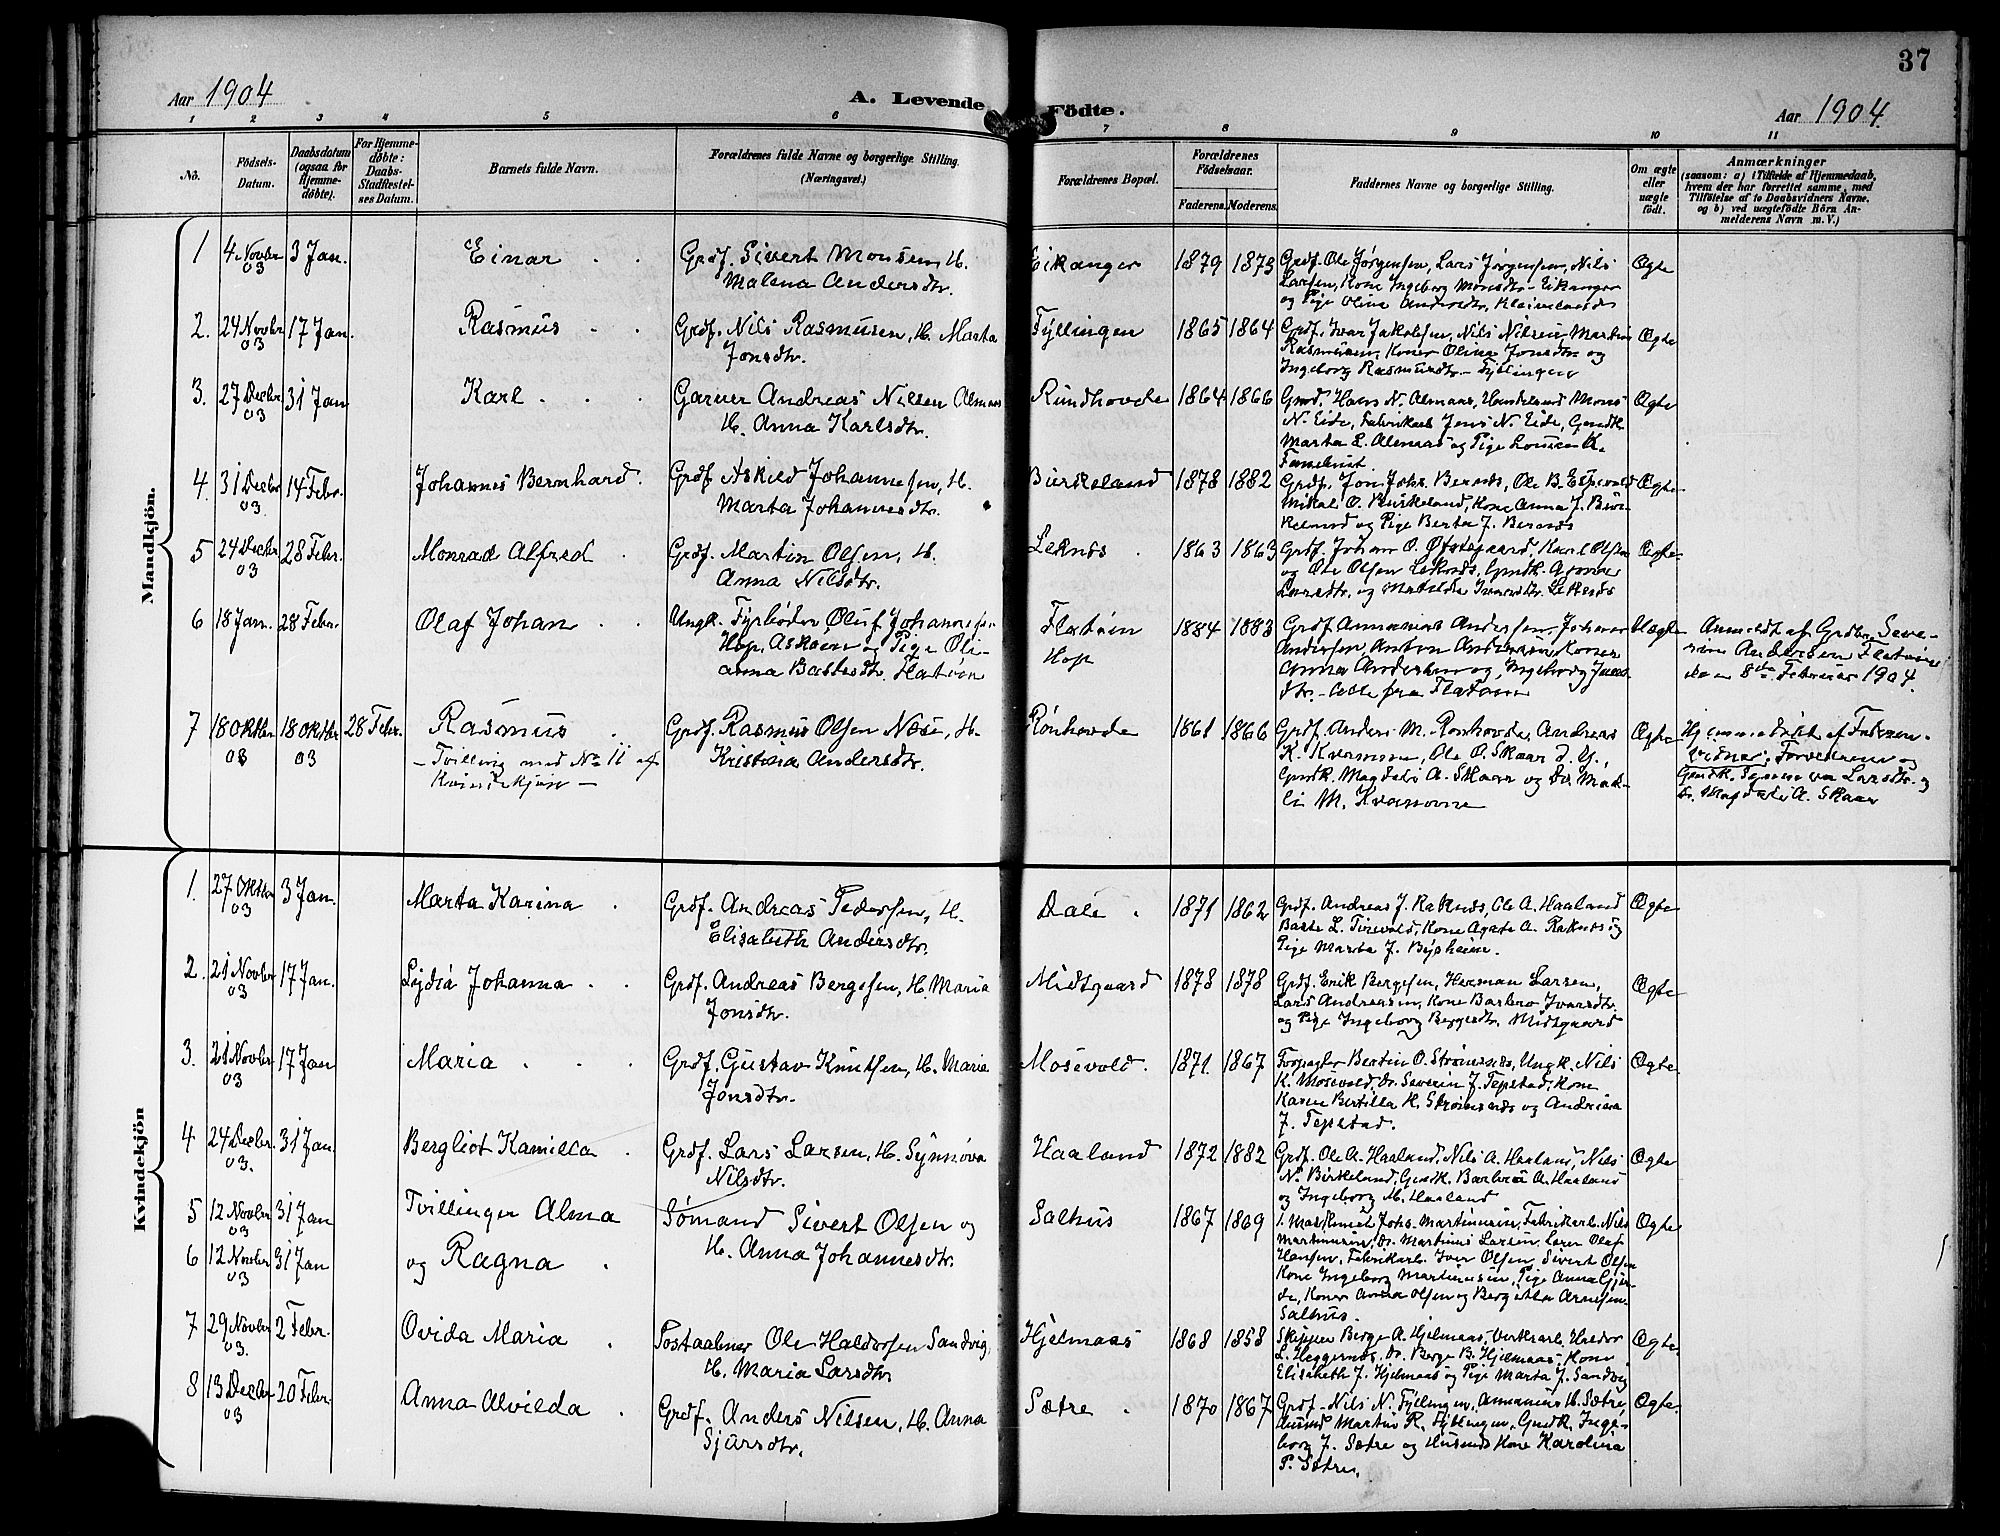 37
Aar 1904
A. Levende Födte.
Aar 1904.
1 2 3 4 5 6 7 8 9 10 11
No.
Födsels-Datum.
Daabsdatum (ogsaa for Hjemmedøbte).
For Hjemmedøbte: Daabs-Stadfæstelses Datum.
Barnets fulde Navn.
Forældrenes fulde Navne og borgerlige Stilling.
(Næringsvei.)
Forældrenes Bopæl.
Forældrenes Födselsaar.
Faderens. Moderens.
Faddernes Navne og borgerlige Stilling.
Om ægte eller uægte födt.
Anmærkninger
(saasom: a) i Tilfælde af Hjemmedaab,
hvem der har forrettet samme, med
Tilføielse af to Daabsvidners Navne,
og b) ved uægtefödte Börn An-
melderens Navn m. V.)
Mandkjön.
1 4 Novbr 03 3 Jan. Einar Grdf. Sivert Monsen, H. Eikanger 1879 1873 Grdf. Ole Jørgensen, Lars Jørgensen, Nils Ægte
Malena Andersdtr. Larsen, Kone Ingeborg Monsdtr. Eikanger
og Pige Olina Andersdtr.
2. 24 Novbr 03 17 Jan. Rasmus Grdf. Nils Rasmusen, H. Marta Fyllingen 1865 1864 Grdf. Ivar Jakobsen, Nils Nilsen, Martin Ægte
Jonsdtr. Rasmusen, Koner Olina Jonsdtr. og
Ingeborg Rasmusdtr. Fyllingen
3. 27 Decbr 03 31 Jan Karl Garver Andreas Nilsen Almaas Rundhovde 1864 1866 Gmd. Hans N. Almaas, Handelsmd Mons Ægte
H. Anna Karlsdtr. N. Eide, Jens N. Eide, Gmdk.
Marta L. Almaas og Pige Lovise K.
4. 31 Decbr 03 14 Febr. Johannes Bernhard. Grdf. Askild Johannesen, H. Birkeland 1878 1882 Grdf. Jon Johs. Bernes, Ole B. Espevold Ægte
Marta Johannesdtr. Mikal O. Birkeland, Kone Anna J. Bir-
keland og Pige Berta J. Bernes
5 24 Decbr 03 28 Febr. Monrad Alfred Grdf. Martin Olsen, H. Leknes 1863 1863 Grdf. Johan O. Østegaard, Karl Olsen Ægte
Anna Nilsdtr. og Ole Olsen Leknes, Gmdk.
Larsdtr. og Matilda Leknes
6 18 Jan. 28 Febr. Olaf Johan Ungk. Fyrbøder Oluf Johannesen Flatøen 1884 1883 Grdf. Annanias Andersen, Johannes Uægte Anmeldt af Grdbr. Seve-
Hop, Askøen og Pige Oli- Hop Andersen, Anton Andersen, Koner rin Andersen Flatøen
anna Bastesdtr. Flatøen Anna Andersen og Ingeborg den 8de Februar 1904.
dtr. – alle fra Flatøen
7 18 Oktbr 03 18 Oktbr 03 28 Febr. Rasmus Grdf. Rasmus Olsen Nese, H. Rønhovde 1861 1866 Grdf. Anders M. Rønhovde, Andreas Ægte Hjemmedøbt af Faderen
– Tvilling med No 11 af Kristina Andersdtr. K. Kvamme, Ole O. Skaar d. Y., Vidner: Forældrene og
Kvindekjøn – Gmdk. Magdeli A. Skaar og Do. Mad- Gmdk. Larsdtr. og
li M. Kvamme Do. Magdeli A. Skaar
Kvindekjön
1. 27 Oktbr 03 3 Jan. Marta Karina Grdf. Andreas Pedersen, H. Dale 1871 1862 Grdf. Andreas J. Raknes, Ole A. Haaland Ægte
Elisabeth Andersdtr. Baste L. Kone Agate A. Raknes og
Pige Marta J.
2. 21 Novbr 03 17 Jan. Lydia Johanna Grdf. Andreas Bergesen, H. Maria Midtgaard 1878 1878 Grdf. Erik Bergesen, Herman Larsen, Ægte
Jonsdtr. Lars Andreasen, Kone Barbro Ivarsdtr.
og Pige Ingeborg Bergesdtr. Midtgaard
3. 21 Novbr 03 17 Jan Maria Grdf. Gustav Knutsen, H. Maria Mosevold. 1871. 1867 Forpagter Bertin O. Strømsnes, Ungk. Nils Ægte
Jonsdtr. K. Mosevold, Do. Severin J. Tepstad, Kone
Karen Bertilla H. Strømsnes og Andrina
J. Tepstad.
4 24 Decbr 03. 31 Jan. Bergliot Kamilla Grdf. Lars Larsen, H. Synnøva Haaland 1872 1882 Grdf. Ole A. Haaland, Nils A. Haaland, Nils Ægte
Nilsdtr. N. Birkeland, Gmdk. Barbra A. Haaland
og Ingeborg M. Haaland
5 12 Novbr 31 Jan Tvillinger Alma Sømand Sivert Olsen og Salhus 1867 1869 Johs. Martinusen, Fabrikarb. Nils Ægte
6 12 Novbr 03 31 Jan og Ragna H. Anna Johannesdtr. Martinusen, Do. Martinus Larsen, Olaf
Hansen, Fabrikarb. Iver Olsen, Sivert Olsen
Kone Ingeborg Martinusen, Pige Anna
Koner Anna Olsen og Bergitta Arnesen
Salhus.
7 29 Novbr 03. 2 Febr. Ovida Maria Postaabner Ole Haldorsen Sandvig, Hjelmaas 1868 1858 Skipper Berge A. Hjelmaas, Verkarb. Haldor Ægte
H. Maria Larsdtr L. Heggernes, Do. Berge B. Hjelmaas, Kone
Elisabeth J. Hjelmaas og Pige Marta J. Sandvig
8 13 Decbr 03 20 Febr. Anna Alvilda Grdf. Anders Nilsen, H. Anna Sætre 1870 1867 Grdf. Nils N. Fyllingen, Annanias H. Sætre Ægte
Sjursdtr. Husmd Martin R. Fyllingen, Gmdk. Inge-
borg J. Sætre og Husmds Kone Karolina
P. Sætre.